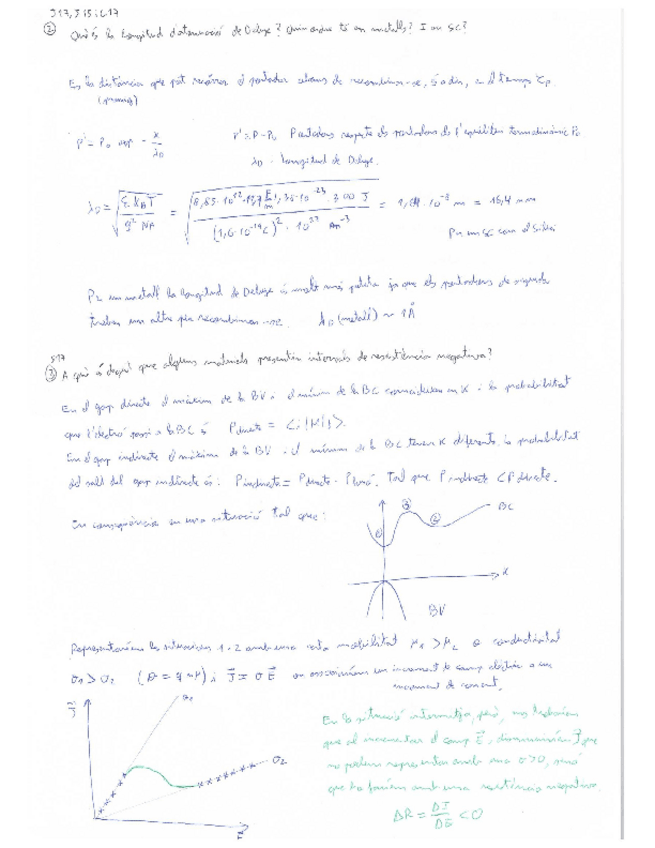 J17, J15, G17
② Què és la longitud d'atenuació de Debye? Quin ordre té en metalls? I en SC?
És la distància que pot recórrer el portador abans de recombinar-se, és a dir, el temps τp.
(promig)
p' = p₀ exp - x/λD   p' = p - p₀ Portadors respecte els portadors de l'equilibri termodinàmic p₀
λD - Longitud de Debye.
λD = √(ε kB T / q² NA) = √(8,85·10¹²·11,7 F/m 1,38·10⁻²³·300 J / (1,6·10⁻¹⁹C)²·10²³ m⁻³) = 10⁻⁸ m = 16,4 nm
Per un SC com el silici
Per un metall la longitud de Debye és molt més petita ja que els portadors de seguida
troben un altre per recombinar-se. λD (metall) ~ 1Å
J17
③ A què és degut que alguns materials presentin intervals de resistència negativa?
En el gap directe el màxim de la BV i el mínim de la BC coincideixen en K i la probabilitat
que l'electró passi a la BC és Pdirecte = <i|H|f>.
En el gap indirecte el màxim de la BV i el mínim de la BC tenen K diferents, la probabilitat
del salt del gap indirecte és: Pindirecte = Pdirecte · Pfonó. Tal que Pindirecte < Pdirecte.
En conseqüència en una situació tal que:
① ③ ② BC
K
BV
Representaríem les situacions 1 i 2 amb una certa mobilitat μ₁ > μ₂ o conductivitat
σ₁ > σ₂ (σ = q n μ) i J = σE on associaríem un increment de camp elèctric a un
increment de corrent.
J σ₁
σ₂
E
En la situació intermitja, però, ens trobaríem
que al incrementar el camp E, disminuiria J, que
no podem representar amb una σ>0, sinó
que ho faríem amb una resistència negativa.
ΔR = ΔJ/ΔE < 0